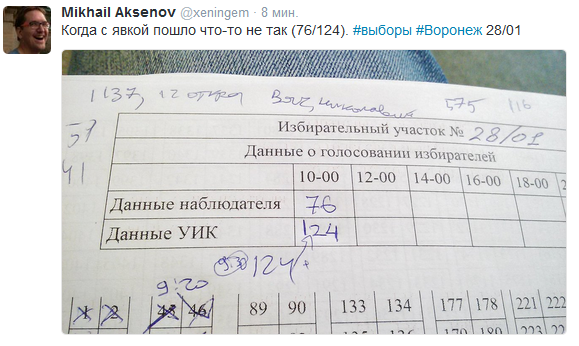 Mikhail Aksenov @xeningem · 8 мин.
Когда с явкой пошло что-то не так (76/124). #выборы #Воронеж 28/01
1137, 575 116
57
Избирательный участок № 28/01
Данные о голосовании избирателей
41
10-00 12-00 14-00 16-00 18-00 2
Данные наблюдателя 76
Данные УИК 124
9:30 124
9:20
1 2 45 46 89 90 133 134 177 178 221 222
135 136 179 180 223